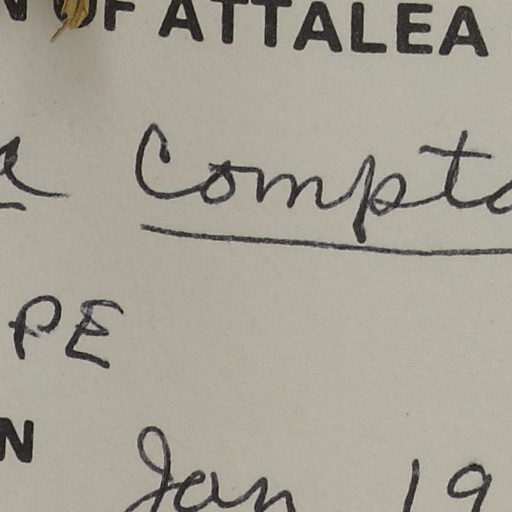 OF ATTALEA
a compta
PE
N
Jan 19